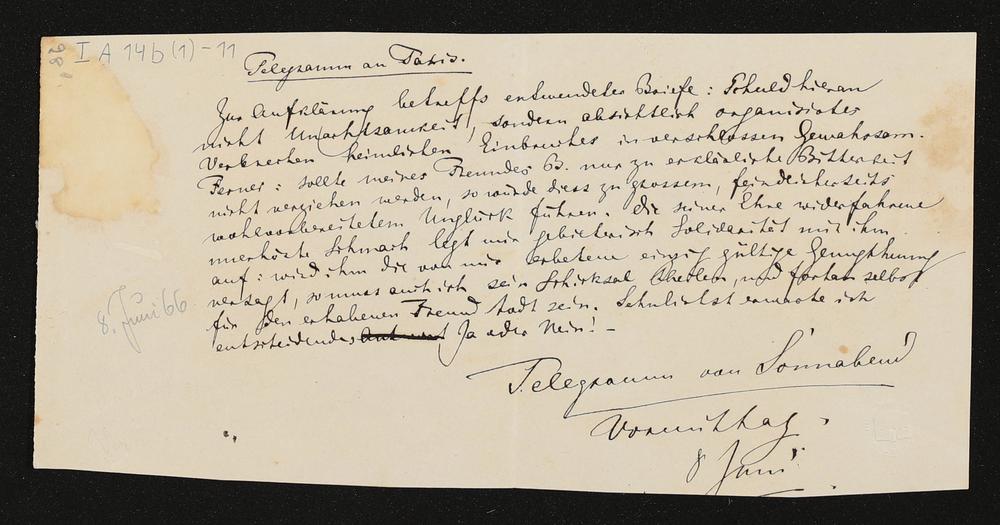 98
I A 14b (1) - 11
Telegramm an Taxis.
Zur Aufklärung betreffs entwendeter Briefe: Schuld hieran
nicht Unachtsamkeit, sondern absichtlich organisirtes
Verbrechen heimlichen Einbruches in verschlossen Gewahrsam.
Ferner: sollte meines Freundes B. nur zu erklärliche Bitterkeit
nicht verziehen werden, so würde diess zu grossem, feindlicherseits
wohlvorbereitetem Unglück führen. Die seiner Ehre widerfahrene
unerhörte Schmach legt mir gebieterisch Solidarität mit ihm
auf: wird ihm die von mir erbetene einzig gültige Genugthuung
versagt, so muss auch ich sein Schicksal theilen, und fortan selbst
für den erhabenen Freund todt sein. Sehnlichst erwarte ich
entscheidendes Ja oder Nein! –
8. Juni 66
Telegramm von Sonnabend
Vormittag.
8 Juni